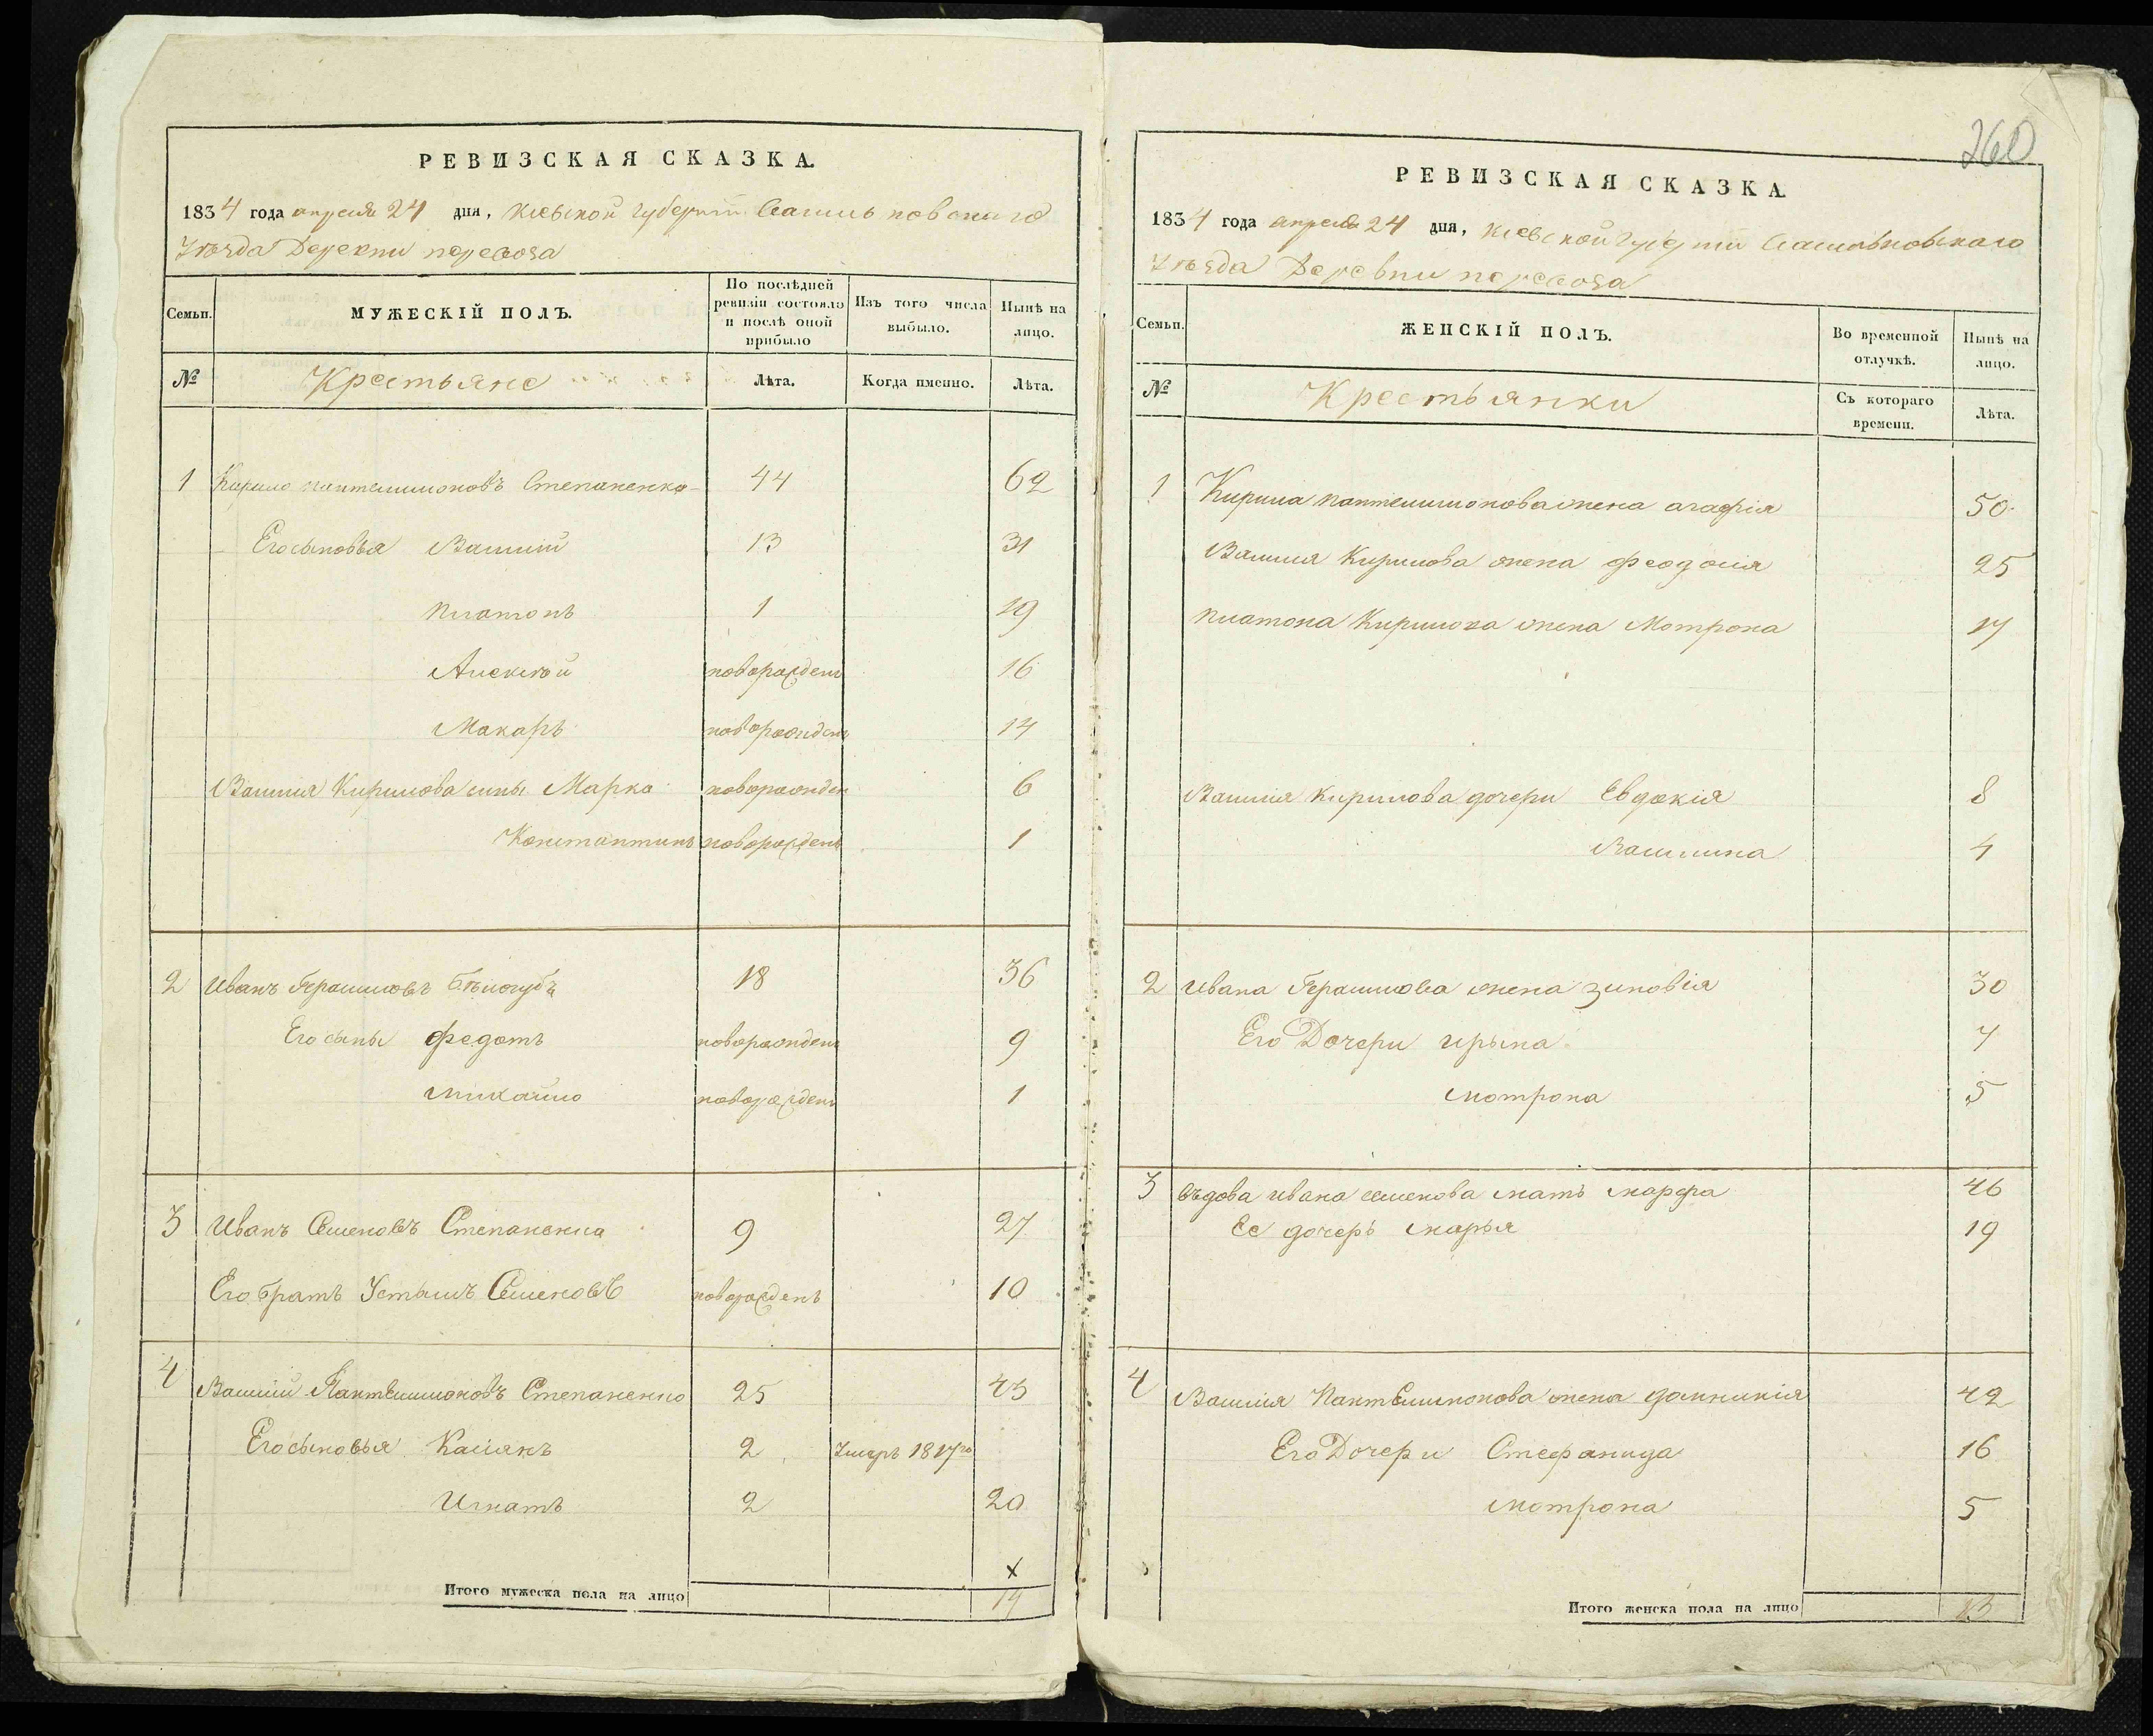 РЕВИЗСКАЯ СКАЗКА.
1834 года апреля 24 дня, Киевской губернии Васильковскаго
Уезда Деревни перевоза
Семьи.
МУЖЕСКІЙ ПОЛЪ.
По послѣдней ревизіи состояло и послѣ оной прибыло
Изъ того числа выбыло.
Нынѣ на лицо.
№
Крестьяне
Лѣта.
Когда именно.
Лѣта.
1 Кирило пантелимоновъ Степаненко 44 62
Его сыновья Василій 13 31
платонъ 1 19
Алексѣй новорожденъ 16
Макаръ новорожденъ 14
Василия Кирилова сины Марко новорожден 6
Константинъ новорожденъ 1
2 Иванъ Герасимовъ Бѣлогубъ 18 36
Его сыны федотъ новорожденъ 9
михайло новорожденъ 1
3 Иванъ Семеновъ Степаненко 9 27
Его братъ Устимъ Семеновъ новорожденъ 10
4 Василий Пантелимоновъ Степаненко 25 43
Его сыновья Касіянъ 2 Умеръ 1817го
Игнатъ 2 20
х
Итого мужеска пола на лицо 14
260
РЕВИЗСКАЯ СКАЗКА
1834 года апреля 24 дня, Киевской губернии Васильковскаго
Уезда Деревни перевоза
Семьи.
ЖЕНСКІЙ ПОЛЪ.
Во временной отлучкѣ.
Нынѣ на лицо.
№
Крестьянки
Съ котораго времени.
Лѣта.
1 Кирила пантелимонова жена агафія 50
Василия Кирилова жена феодосія 25
платона Кирилова жена Мотрона 17
Василия кирилова дочери Евдокія 8
Василина 4
2 Ивана Герасимова жена зиновія 30
Его Дочери ирына 7
мотрона 5
3 въдова ивана семенова мать марфа 46
Ее дочерь марья 19
4 Василия Пантелимонова жена домникія 42
Его Дочери Стефанида 16
мотрона 5
Итого женска пола на лицо 13